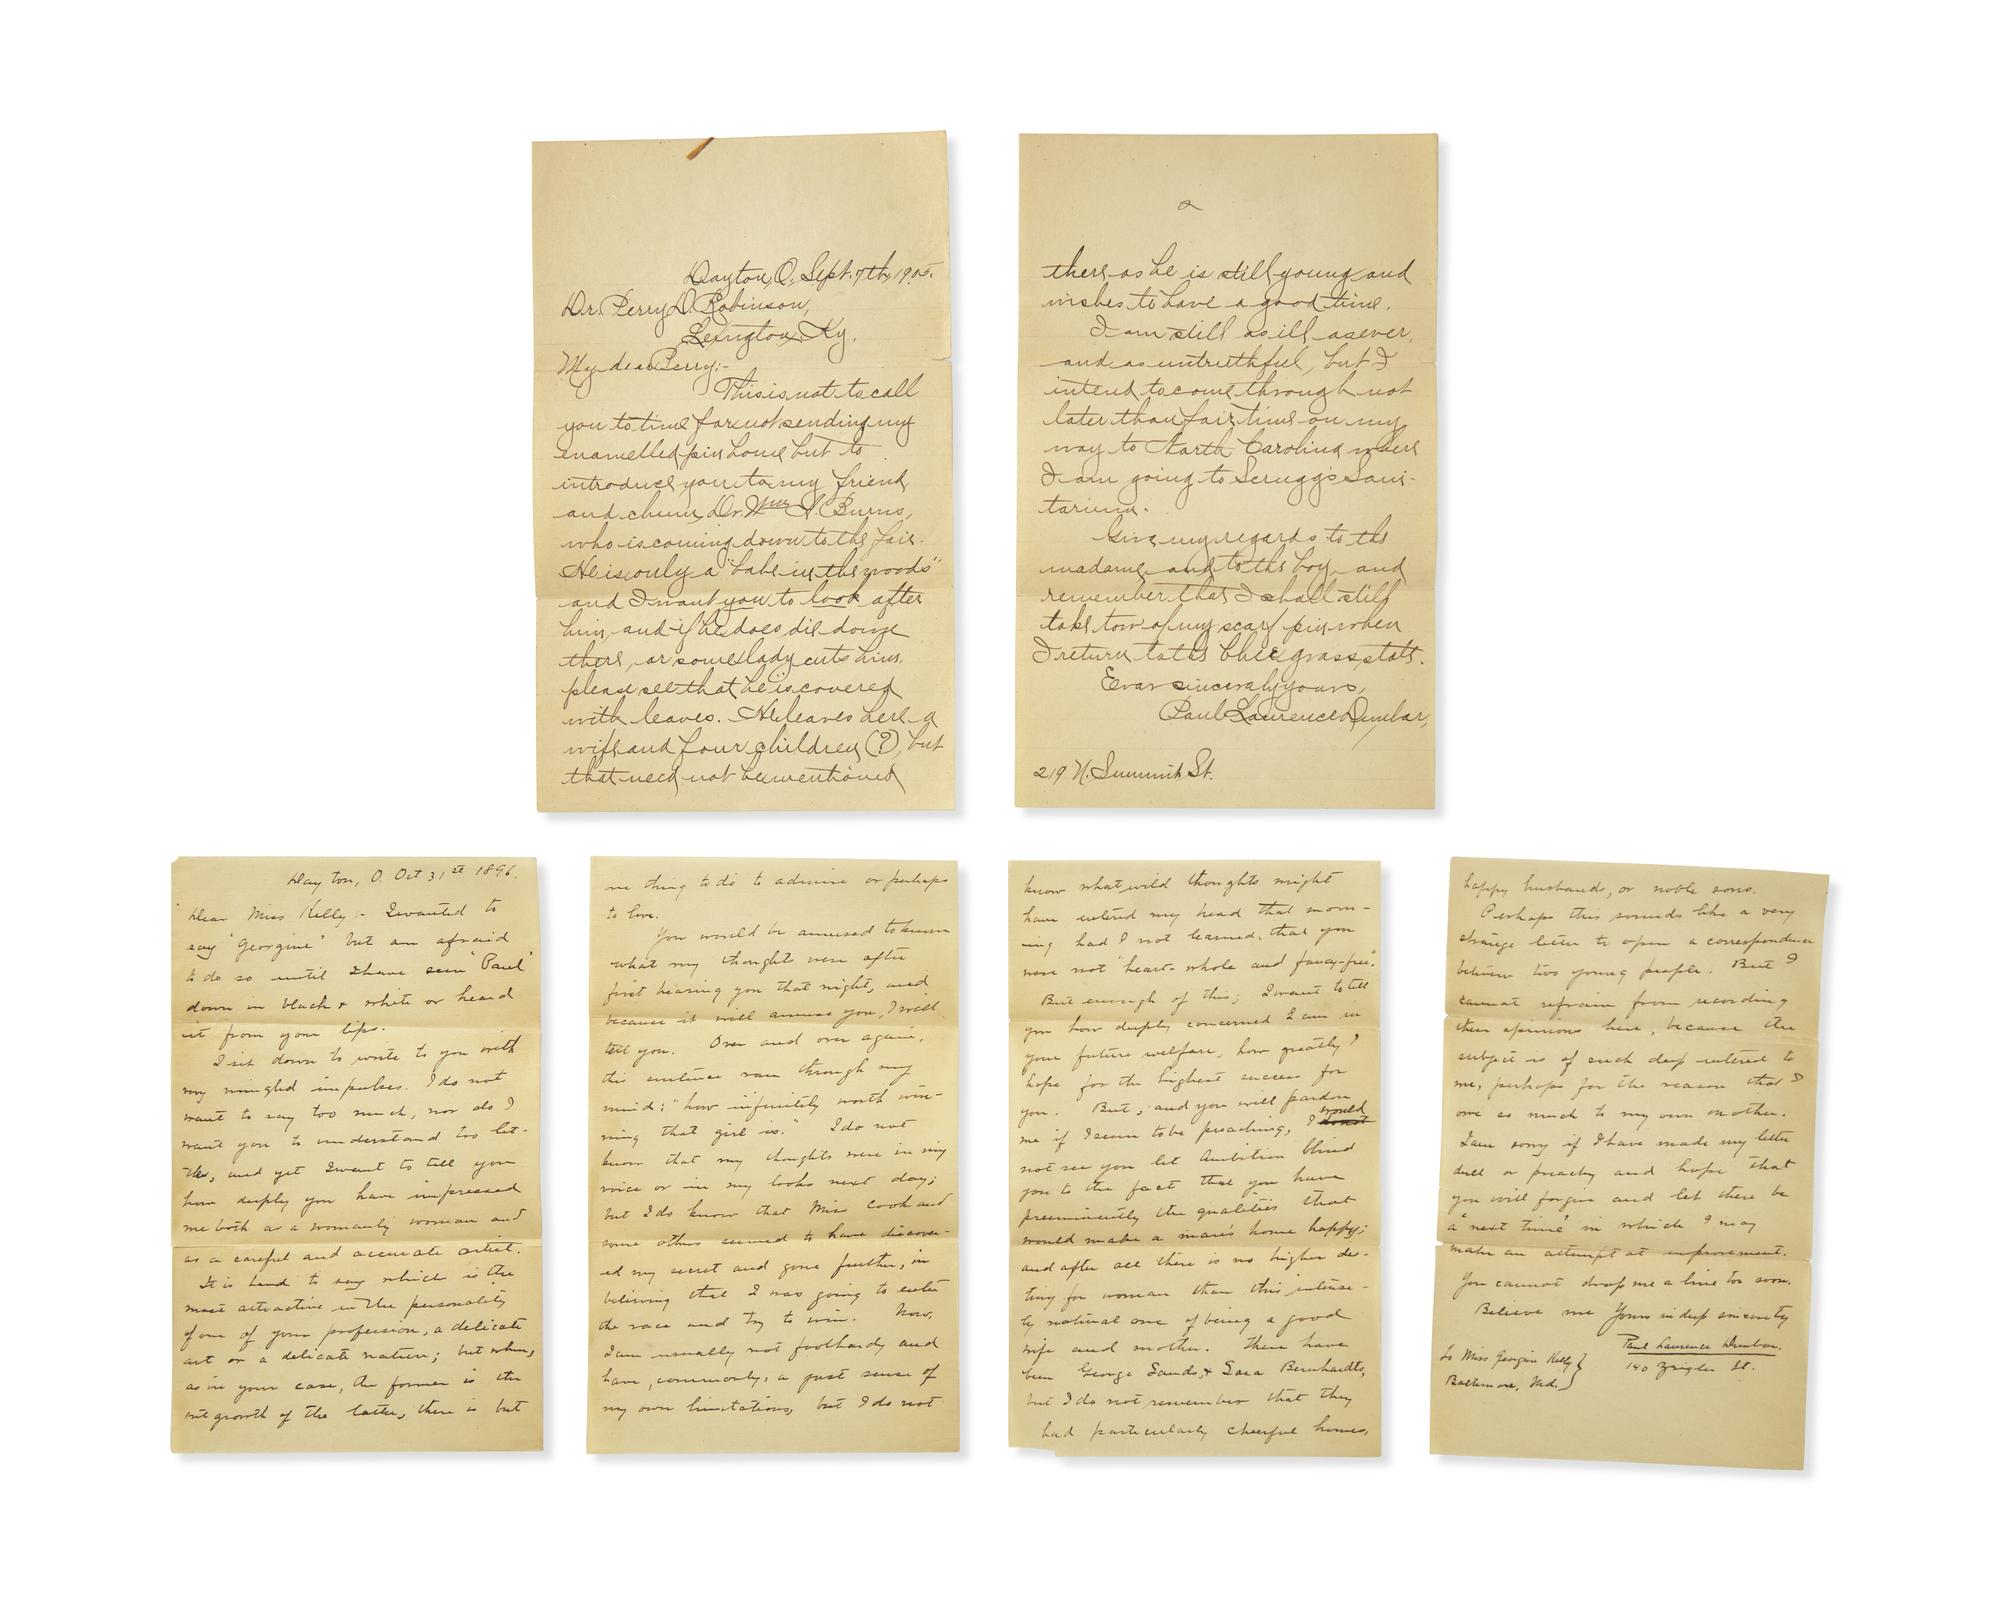 Dayton, O. Sept. 7th, 1905.
Dr. Perry D. Robinson,
Lexington, Ky.
My dear Perry:-
This is not to call
you to time for not sending my
enamelled pin home but to
introduce you to my friend
and chum, Dr. Wm. Burns,
who is coming down to the fair.
He is only a "babe in the woods"
and I want you to look after
him, and if he does die down
there, or some lady cuts him,
please see that he is covered
with leaves. He leaves here a
wife and four children (?), but
that need not be mentioned
2
there as he is still young and
wishes to have a good time.
I am still as ill as ever,
and as untruthful, but I
intend to come through not
later than fair time on my
way to North Carolina where
I am going to Scruggs Sani-
tarium.
Give my regards to the
madame and to the boy, and
remember that I shall still
take tow of my scarf pin when
I return to the blue grass state.
Ever sincerely yours,
Paul Laurence Dunbar,
219 N. Summit St.
Dayton, O. Oct 31st 1896.
Dear Miss Kelly:- I wanted to
say "Georgine" but am afraid
to do so until I have seen "Paul"
down in black & white or heard
it from your lips.
I sit down to write to you with
my mingled impulses. I do not
want to say too much, nor do I
want you to understand too lit-
tle, and yet I want to tell you
how deeply you have impressed
me both as a womanly woman and
as a careful and accurate artist.
It is hard to say which is the
most attractive in the personality
of one of your profession, a delicate
art or a delicate nature; but when,
as in your case, the former is the
outgrowth of the latter, there is but
one thing to do to admire or perhaps
to love.
You would be amused to know
what my thoughts were after
first hearing you that night, and
because it will amuse you, I will
tell you. Over and over again,
this sentence ran through my
mind: "how infinitely worth win-
ning that girl is." I do not
know that my thoughts were in my
voice or in my looks next day;
but I do know that Miss Cook and
some others seemed to have discover-
ed my secret and gone further, in
believing that I was going to enter
the race and try to win. Now,
I am usually not foolhardy and
have, commonly, a just sense of
my own limitations, but I do not
know what wild thoughts might
have entered my head that morn-
ing had I not learned, that you
were not "heart-whole and fancy-free."
But enough of this; I want to tell
you how deeply concerned I am in
your future welfare, how greatly I
hope for the highest success for
you. But, and you will pardon
me if I seem to be preaching, I would
not see you let Ambition blind
you to the fact that you have
preeminently the qualities that
would make a man's home happy;
and after all there is no higher des-
tiny for woman than this intense-
ly natural one of being a good
wife and mother. There have
been George Sands, & Sara Bernhardts,
but I do not remember that they
had particularly cheerful homes,
happy husbands, or noble sons.
Perhaps this sounds like a very
strange letter to open a correspondence
between two young people. But I
cannot refrain from recording
these opinions here, because the
subject is of such deep interest to
me, perhaps for the reason that I
owe so much to my own mother.
I am sorry if I have made my letter
dull or preachy and hope that
you will forgive and let there be
a "next time" in which I may
make an attempt at improvement.
You cannot drop me a line too soon.
Believe me Yours in deep sincerity
Paul Laurence Dunbar.
140 Zeigler St.
To Miss Georgine Kelly
Baltimore, Md.